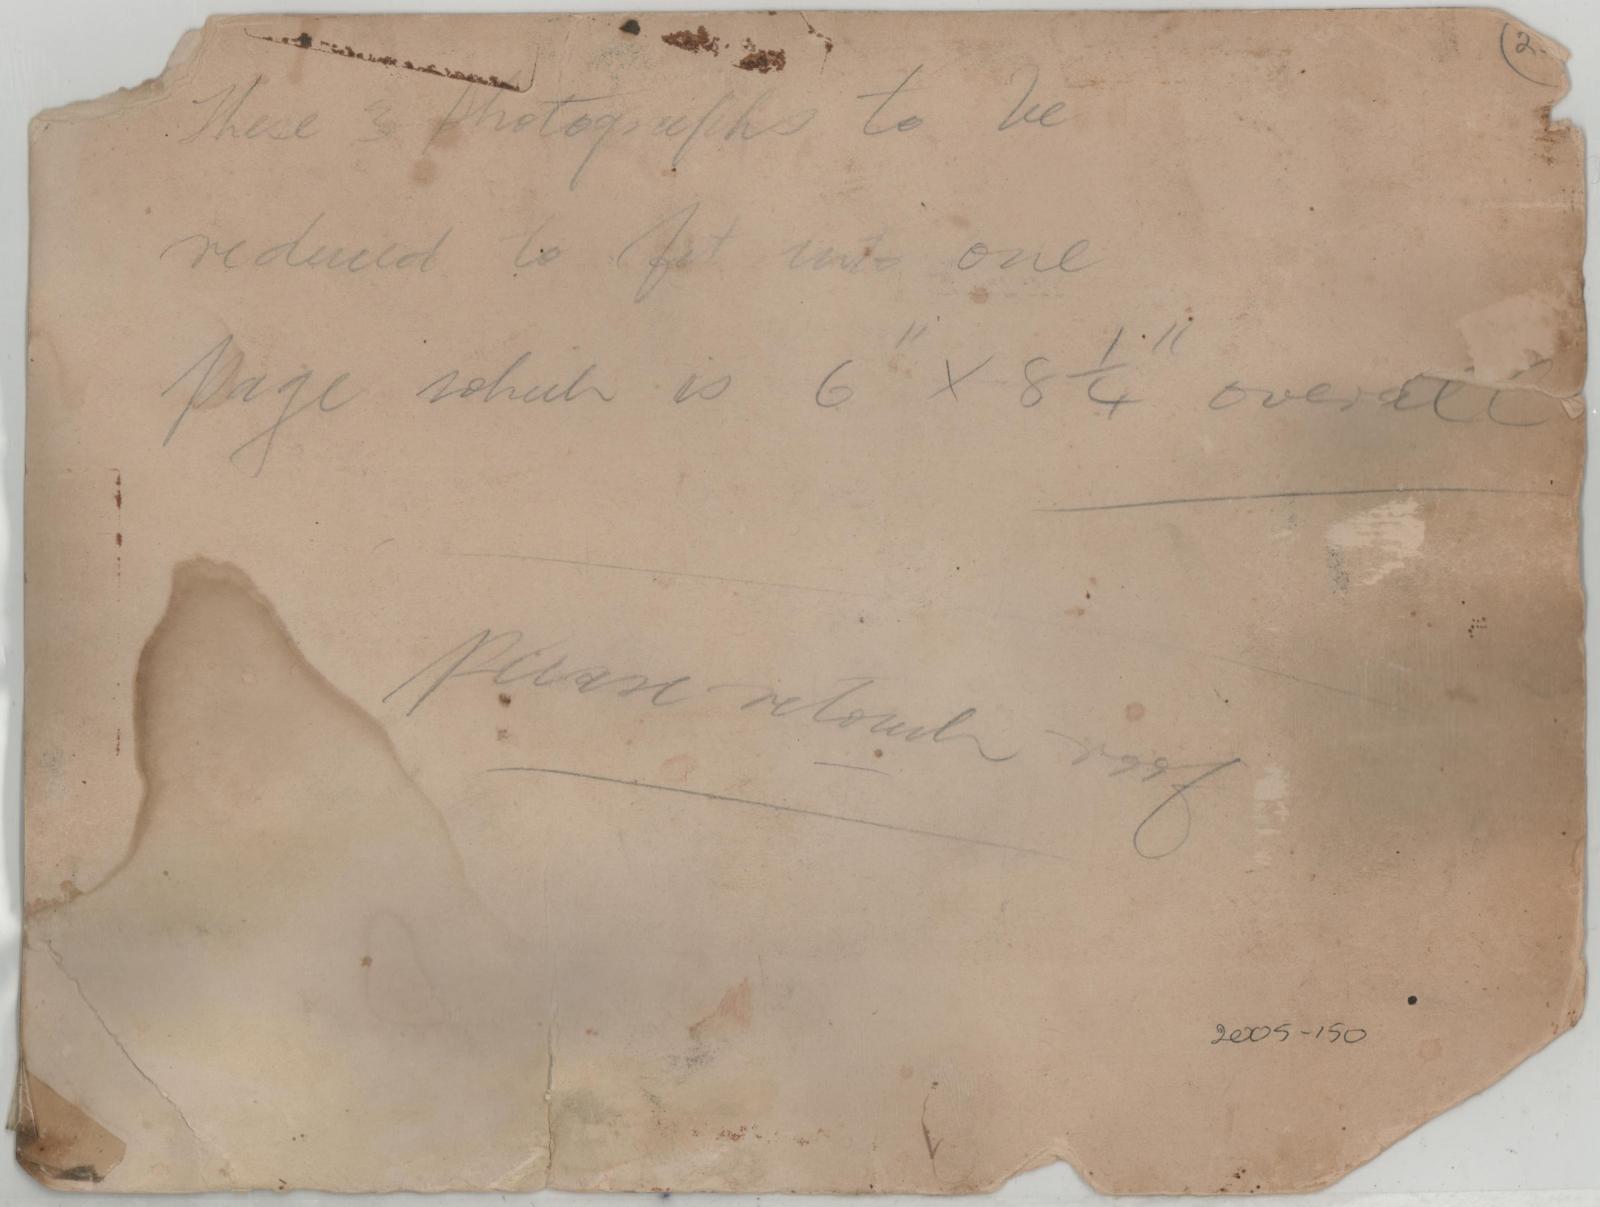 (2.
These 3 Photographs to be
reduced to fit into one
page which is 6" X 8 1/4" overall
Please retouch roof
2005-150